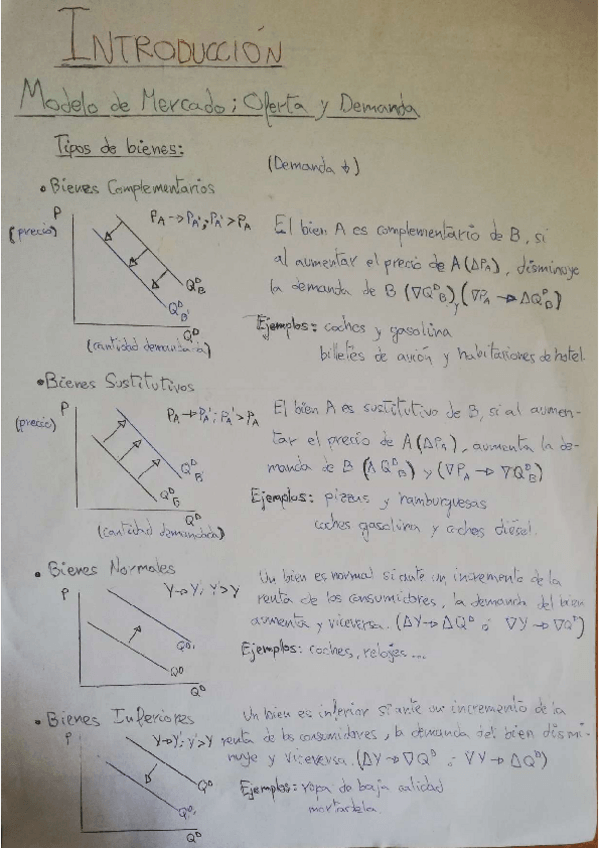 INTRODUCCIÓN
Modelo de Mercado; Oferta y Demanda
Tipos de bienes:
(Demanda ↓)
• Bienes Complementarios
P
(precio)
PA -> PA'; PA' > PA
QDB
QDB'
QD
(cantidad demandada)
El bien A es complementario de B, si
al aumentar el precio de A (ΔPA), disminuye
la demanda de B (∇QDB) y (∇PA → ΔQDB)
Ejemplos: coches y gasolina
billetes de avión y habitaciones de hotel.
• Bienes Sustitutivos
P
(precio)
PA → PA'; PA' > PA
QDB'
QDB
QD
(cantidad demandada)
El bien A es sustitutivo de B, si al aumen-
tar el precio de A (ΔPA), aumenta la de-
manda de B (ΛQDB) y (∇PA → ∇QDB)
Ejemplos: pizzas y hamburguesas
coches gasolina y coches diésel.
• Bienes Normales
P
Y→Y'; Y'>Y
QD'
QD
QD
Un bien es normal si ante un incremento de la
renta de los consumidores, la demanda del bien
aumenta y viceversa. (ΔY→ΔQD ó ∇Y→∇QD)
Ejemplos: coches, relojes...
• Bienes Inferiores
P
Y→Y'; Y'>Y
QD
QD'
QD
Un bien es inferior si ante un incremento de la
renta de los consumidores, la demanda del bien dismi-
nuye y viceversa. (ΔY→∇QD ó ∇Y→ΔQD)
Ejemplos: ropa de baja calidad
mortadela.